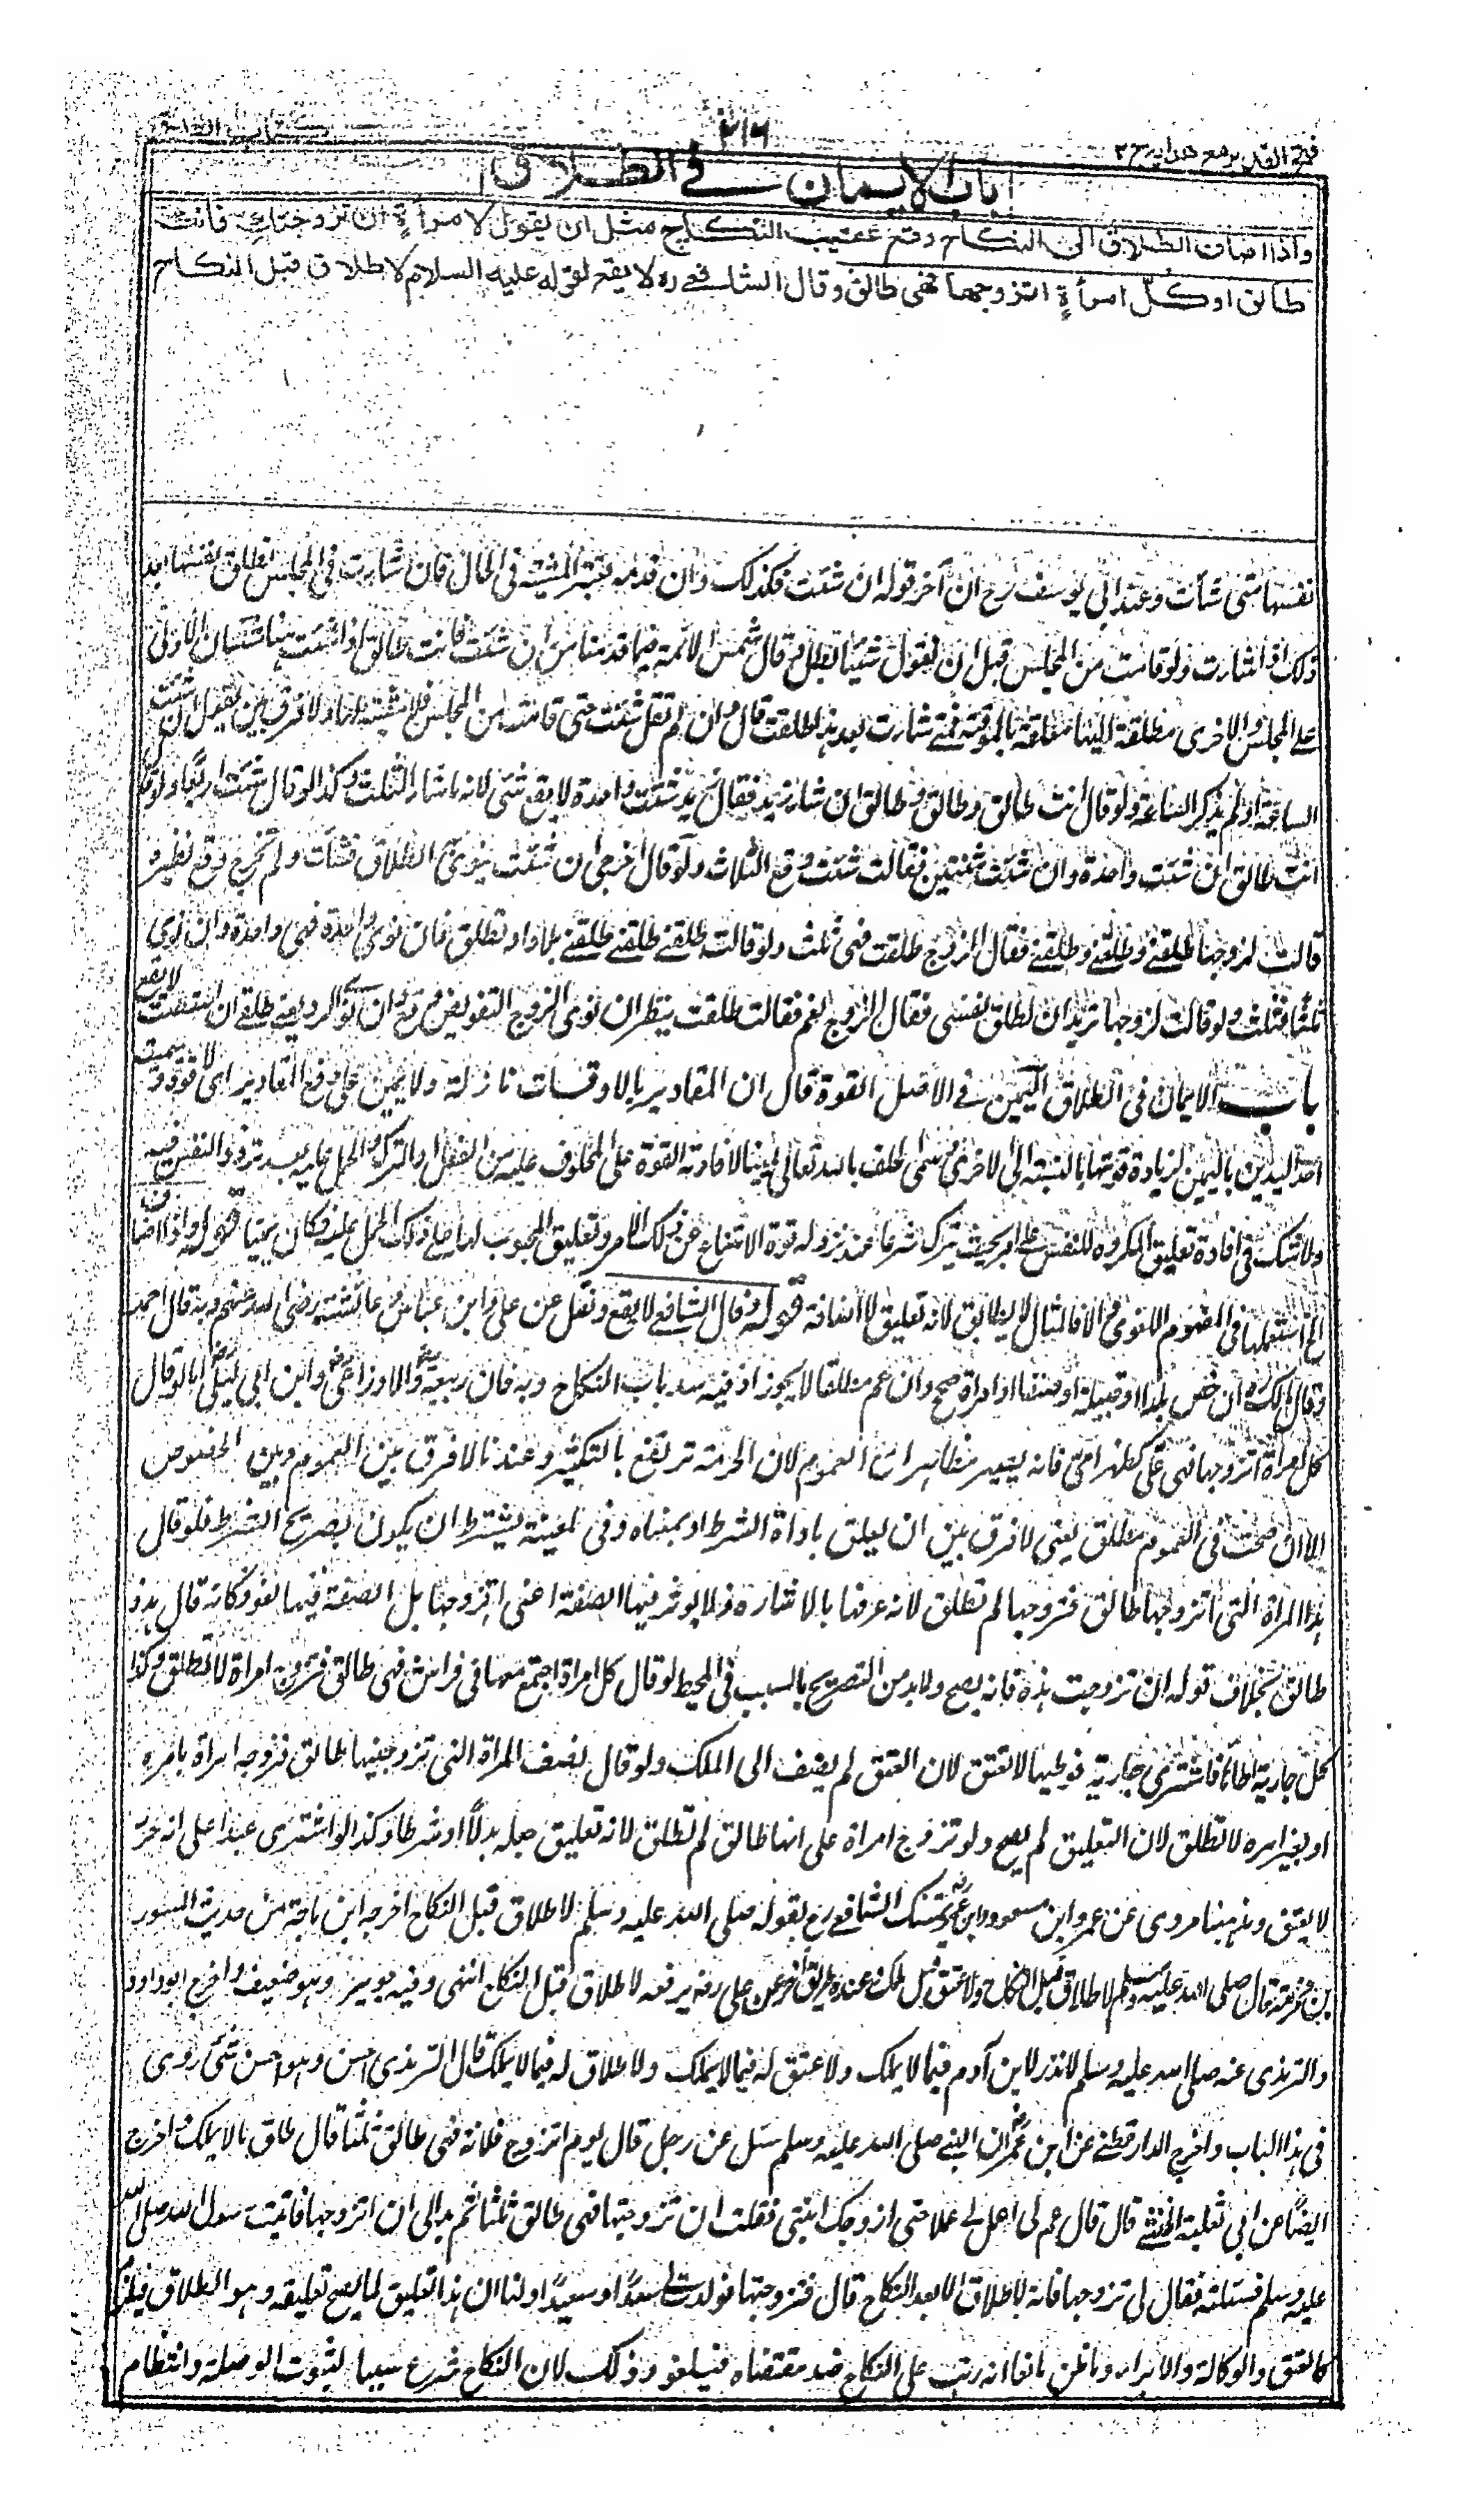 فتح القدير مع هدايه ج ٢
٢١٦
كتاب الطلاق
باب الايمان في الطلاق
واذا اضاف الطلاق الى النكاح وقع عقيب النكاح مثل ان يقول لامرأةٍ ان تزوجتكِ فانت
طالق او كلّ امرأةٍ اتزوجها فهي طالق وقال الشافعي ره لا يقع لقوله عليه السلام لا طلاق قبل النكاح
نفسها متى شأت وعند ابي يوسف رح ان آخر قوله ان شئت فكذلك وان قدمه تعتبر المشية في الحال فان شاءت في المجلس تطلق نفسها بعد
ذلك اذا شاءت ولو قامت من المجلس قبل ان تقول شيئا بطل قال شمس الائمة فيما قدمنا من ان شئت فانت طالق اذا شئت هنا مشيتان الاولى
على المجلس والاخرى مطلقة اليها معلقة بالموقتة فمتى شاءت بعد هذا طلقت قال وان لم تقل شئت حتى قامت من المجلس فلا مشية لها ولا فرق بين ان يقول ان شئت
الساعة او لم يذكر الساعة ولو قال انت طالق وطالق وطالق ان شاء زيد فقال زيد شئت واحدة لا يقع شئ لانه ما شاء الثلث وكذا لو قال شئت اربعا ولو قال
انت طالق ان شئت واحدة وان شئت ثنتين فقالت شئت وقع الثلاث ولو قال اخرجي ان شئت ينوي الطلاق فشأت ولم تخرج وقع نظيره
قالت لزوجها طلقني وطلقني وطلقني فقال الزوج طلقت فهي ثلث ولو قالت طلقني طلقني طلقني بلا واو تطلق فان نوى واحدة فهي واحدة وان نوى
ثلثا فثلث ولو قالت لزوجها تريد ان اطلق نفسي فقال الزوج نعم فقالت طلقت ينظر ان نوى الزوج التفويض وقع وان نوى الرد يعني طلقي ان استطعت لا يقع
باب الايمان في الطلاق اليمين في الاصل القوة قال ان المقادير بالاوقات نازلة ولا يمين على دفع المقادير اى لا قوة وسميت
احد اليدين باليمين لزيادة قوتها بالنسبة الى الاخرى وسمى الحلف بالله تعالى يمينا لافادته القوة على المحلوف عليه من الفعل او الترك والحمل عليه بعد تردد النفس فيه
ولا شك في افادة تعليق المكروه للنفس على امر بحيث يترك شرعا عند نزوله قوة الامتناع عن ذلك الامر وتعليق المحبوب لها على ذلك الحمل عليه فكان يمينا قوله واذا اضاف
الخ استعملها في المفهوم اللغوي والا فالمثال لا يطابق لانه تعليق لا اضافة قوله وقال الشافعي لا يقع ونقل عن علي وابن عباس وعائشة رضى الله عنهم وبه قال احمد
وقال مالك ره ان خص بلدا او قبيلة او صنفا او امراة صح وان عمم مطلقا لا يجوز اذ فيه سد باب النكاح وبه قال ربيعة والاوزاعي وابن ابي ليلى اما لو قال
كل امرأة اتزوجها فهي علي كظهر امي فانه يصير مظاهرا مع العموم لان الحرمة ترتفع بالتكفير وعندنا لا فرق بين العموم وبين الخصوص
الا ان صحته في العموم مطلق يعني لا فرق بين ان يعلق باداة الشرط او بمعناه وفي المعينة يشترط ان يكون بصريح الشرط فلو قال
هذه المرأة التي اتزوجها طالق فتزوجها لم تطلق لانه عرفها بالاشارة فلا يؤثر فيها الصفة اعني اتزوجها بل الصفة فيها لغو وكانه قال هذه
طالق بخلاف قوله ان تزوجت هذه فانه يصح ولا بد من التصريح بالسبب في المحيط لو قال كل امرأة اجتمع معها في فراش فهي طالق فتزوج امرأة لا تطلق وكذا
كل جارية اطأها فاشترى جارية فوطيها لا تعتق لان العتق لم يضف الى الملك ولو قال نصف المرأة التي تزوجنيها طالق فزوجه امرأة بامره
او بغير امره لا تطلق لان التعليق لم يصح ولو تزوج امرأة على انها طالق لم تطلق لانه تعليق جعله بدلًا او شرطا وكذا لو اشترى عبدا على انه حر
لا يعتق ومذهبنا مروى عن عمر وابن مسعود وابن عمر تمسك الشافعي رح بقوله صلى الله عليه وسلم لا طلاق قبل النكاح اخرجه ابن ماجة من حديث المسور
بن مخرمة قال صلى الله عليه وسلم لا طلاق قبل النكاح ولا عتق قبل ملك وعنده طريق آخر عن علي رضه يرفعه لا طلاق قبل النكاح انتهى وفيه جويبر وهو ضعيف واخرج ابو داود
والترمذي عنه صلى الله عليه وسلم لا نذر لابن آدم فيما لا يملك ولا عتق له فيما لا يملك ولا طلاق له فيما لا يملك قال الترمذي حسن وهو احسن شئ روى
في هذا الباب واخرج الدارقطني عن ابن عمر ان النبي صلى الله عليه وسلم سئل عن رجل قال يوم اتزوج فلانة فهي طالق ثلثا قال طلق مالا يملك واخرج
ايضًا عن ابي ثعلبة الخشني قال قال عم لي اعمل لي عملا حتى ازوجك ابنتي فقلت ان تزوجتها فهي طالق ثلثا ثم بدا لي ان اتزوجها فاتيت رسول الله صلى الله
عليه وسلم فسئلته فقال لي تزوجها فانه لا طلاق الا بعد النكاح قال فتزوجتها فولدت لي سعدًا وسعيدًا ولنا ان هذا تعليق لما يصح تعليقه وهو الطلاق فيلزم
كالعتق والوكالة والابراء وما ظن مانعا انه رتب على النكاح ضد مقتضاه فيلغو وذلك لان النكاح شرع سببا لثبوت الوصلة وانتظام